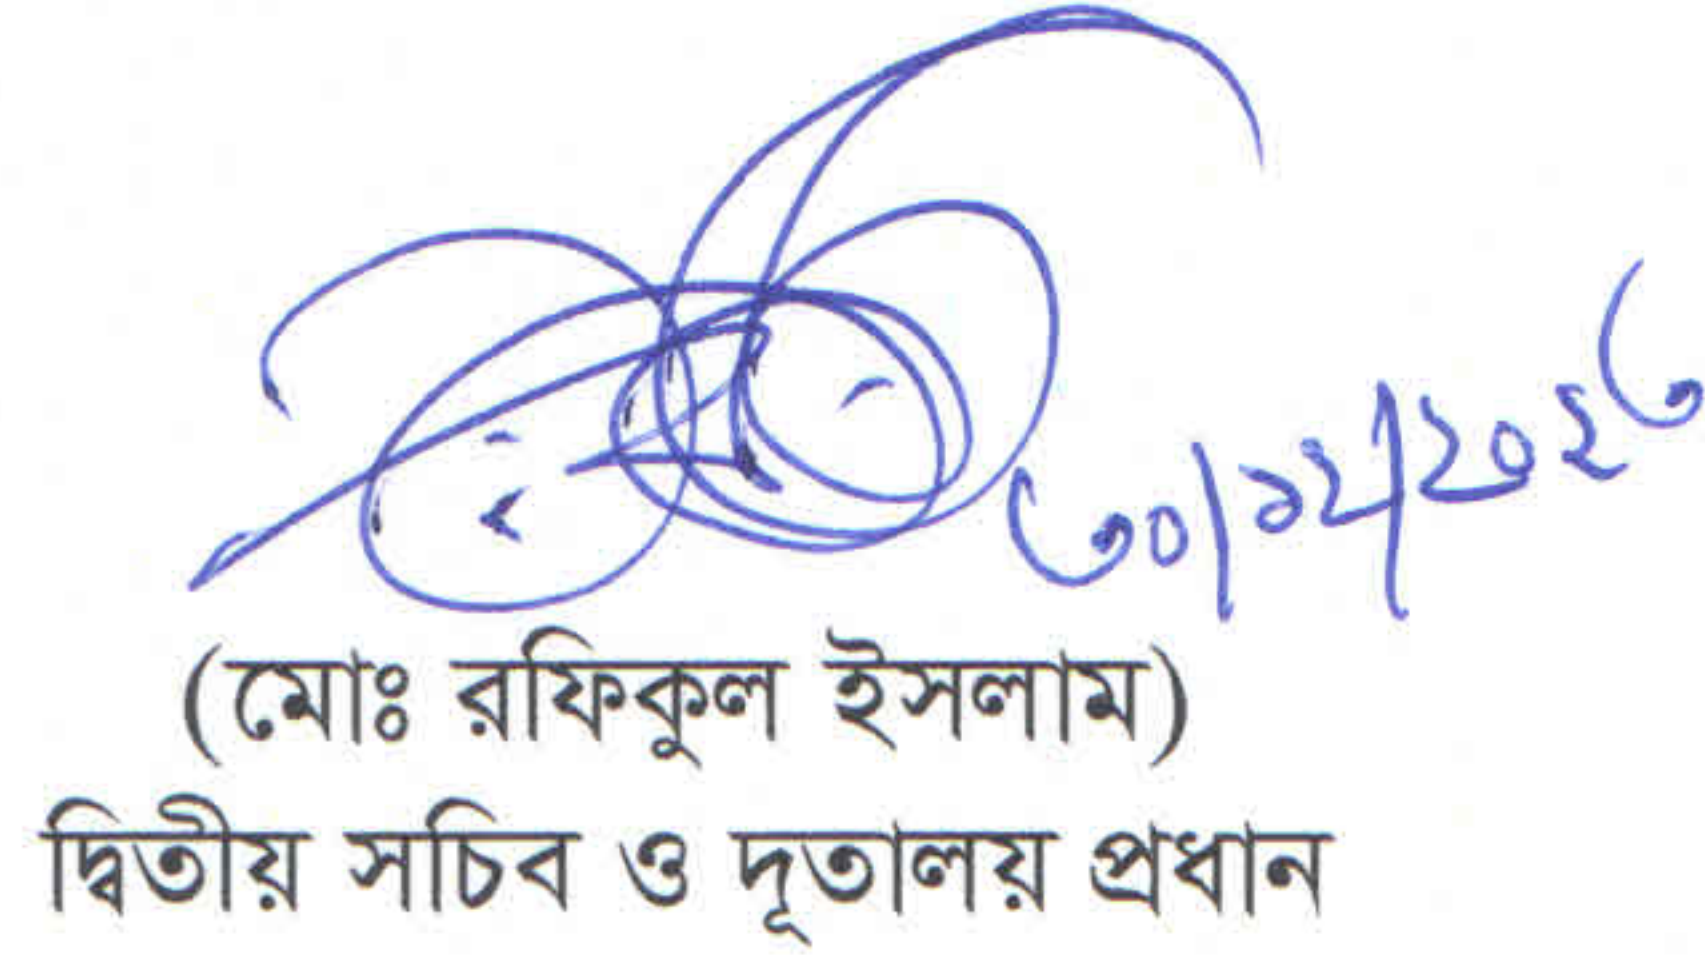 ৩০/১২/২০২৩
(মোঃ রফিকুল ইসলাম)
দ্বিতীয় সচিব ও দূতালয় প্রধান